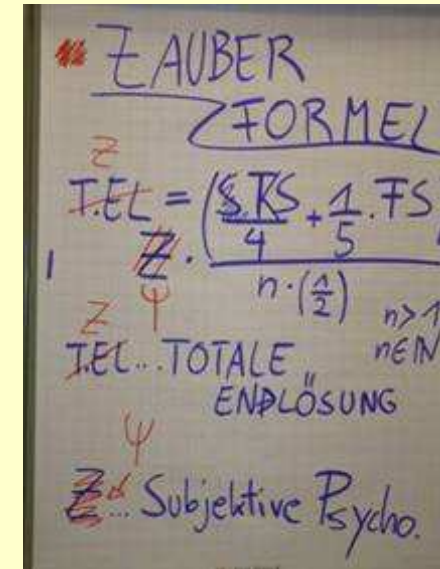 ZAUBER
FORMEL
Z
T.EL = (8.RS/4 + 1/5 . FS)
Z . n . (1/2)
Ψ
n > 1
Z
n ∈ IN
T.EL... TOTALE
ENDLÖSUNG
Ψ
Z... Subjektive Psycho.